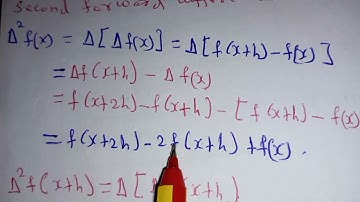 Second forward
Δ²f(x) = Δ[Δf(x)] = Δ[f(x+h) - f(x)]
= Δf(x+h) - Δf(x)
= f(x+2h) - f(x+h) - [f(x+h) - f(x)
= f(x+2h) - 2f(x+h) + f(x).
Δ²f(x+h) = Δ[ (x+h)